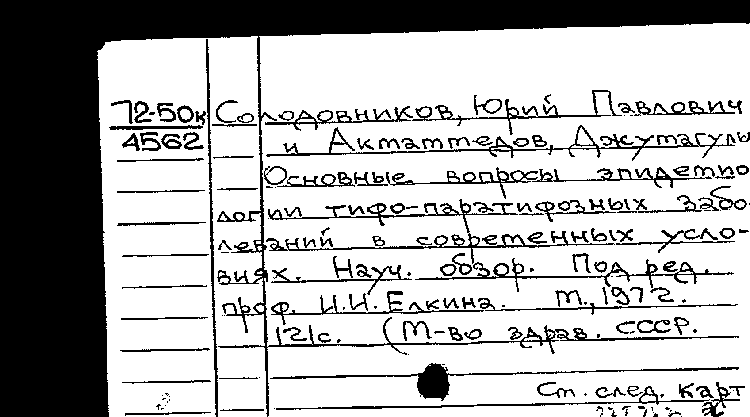 72-50к Солодовников, Юрий Павлович
4562 и Акмаммедов, Джумагулы
Основные вопросы эпидемио
логии тифо-паратифозных забо-
леваний в современных усло-
виях. Науч. обзор. Под ред.
проф. И.И. Елкина. М., 1972.
121с. (М-во здрав. СССР.
См. след. карт